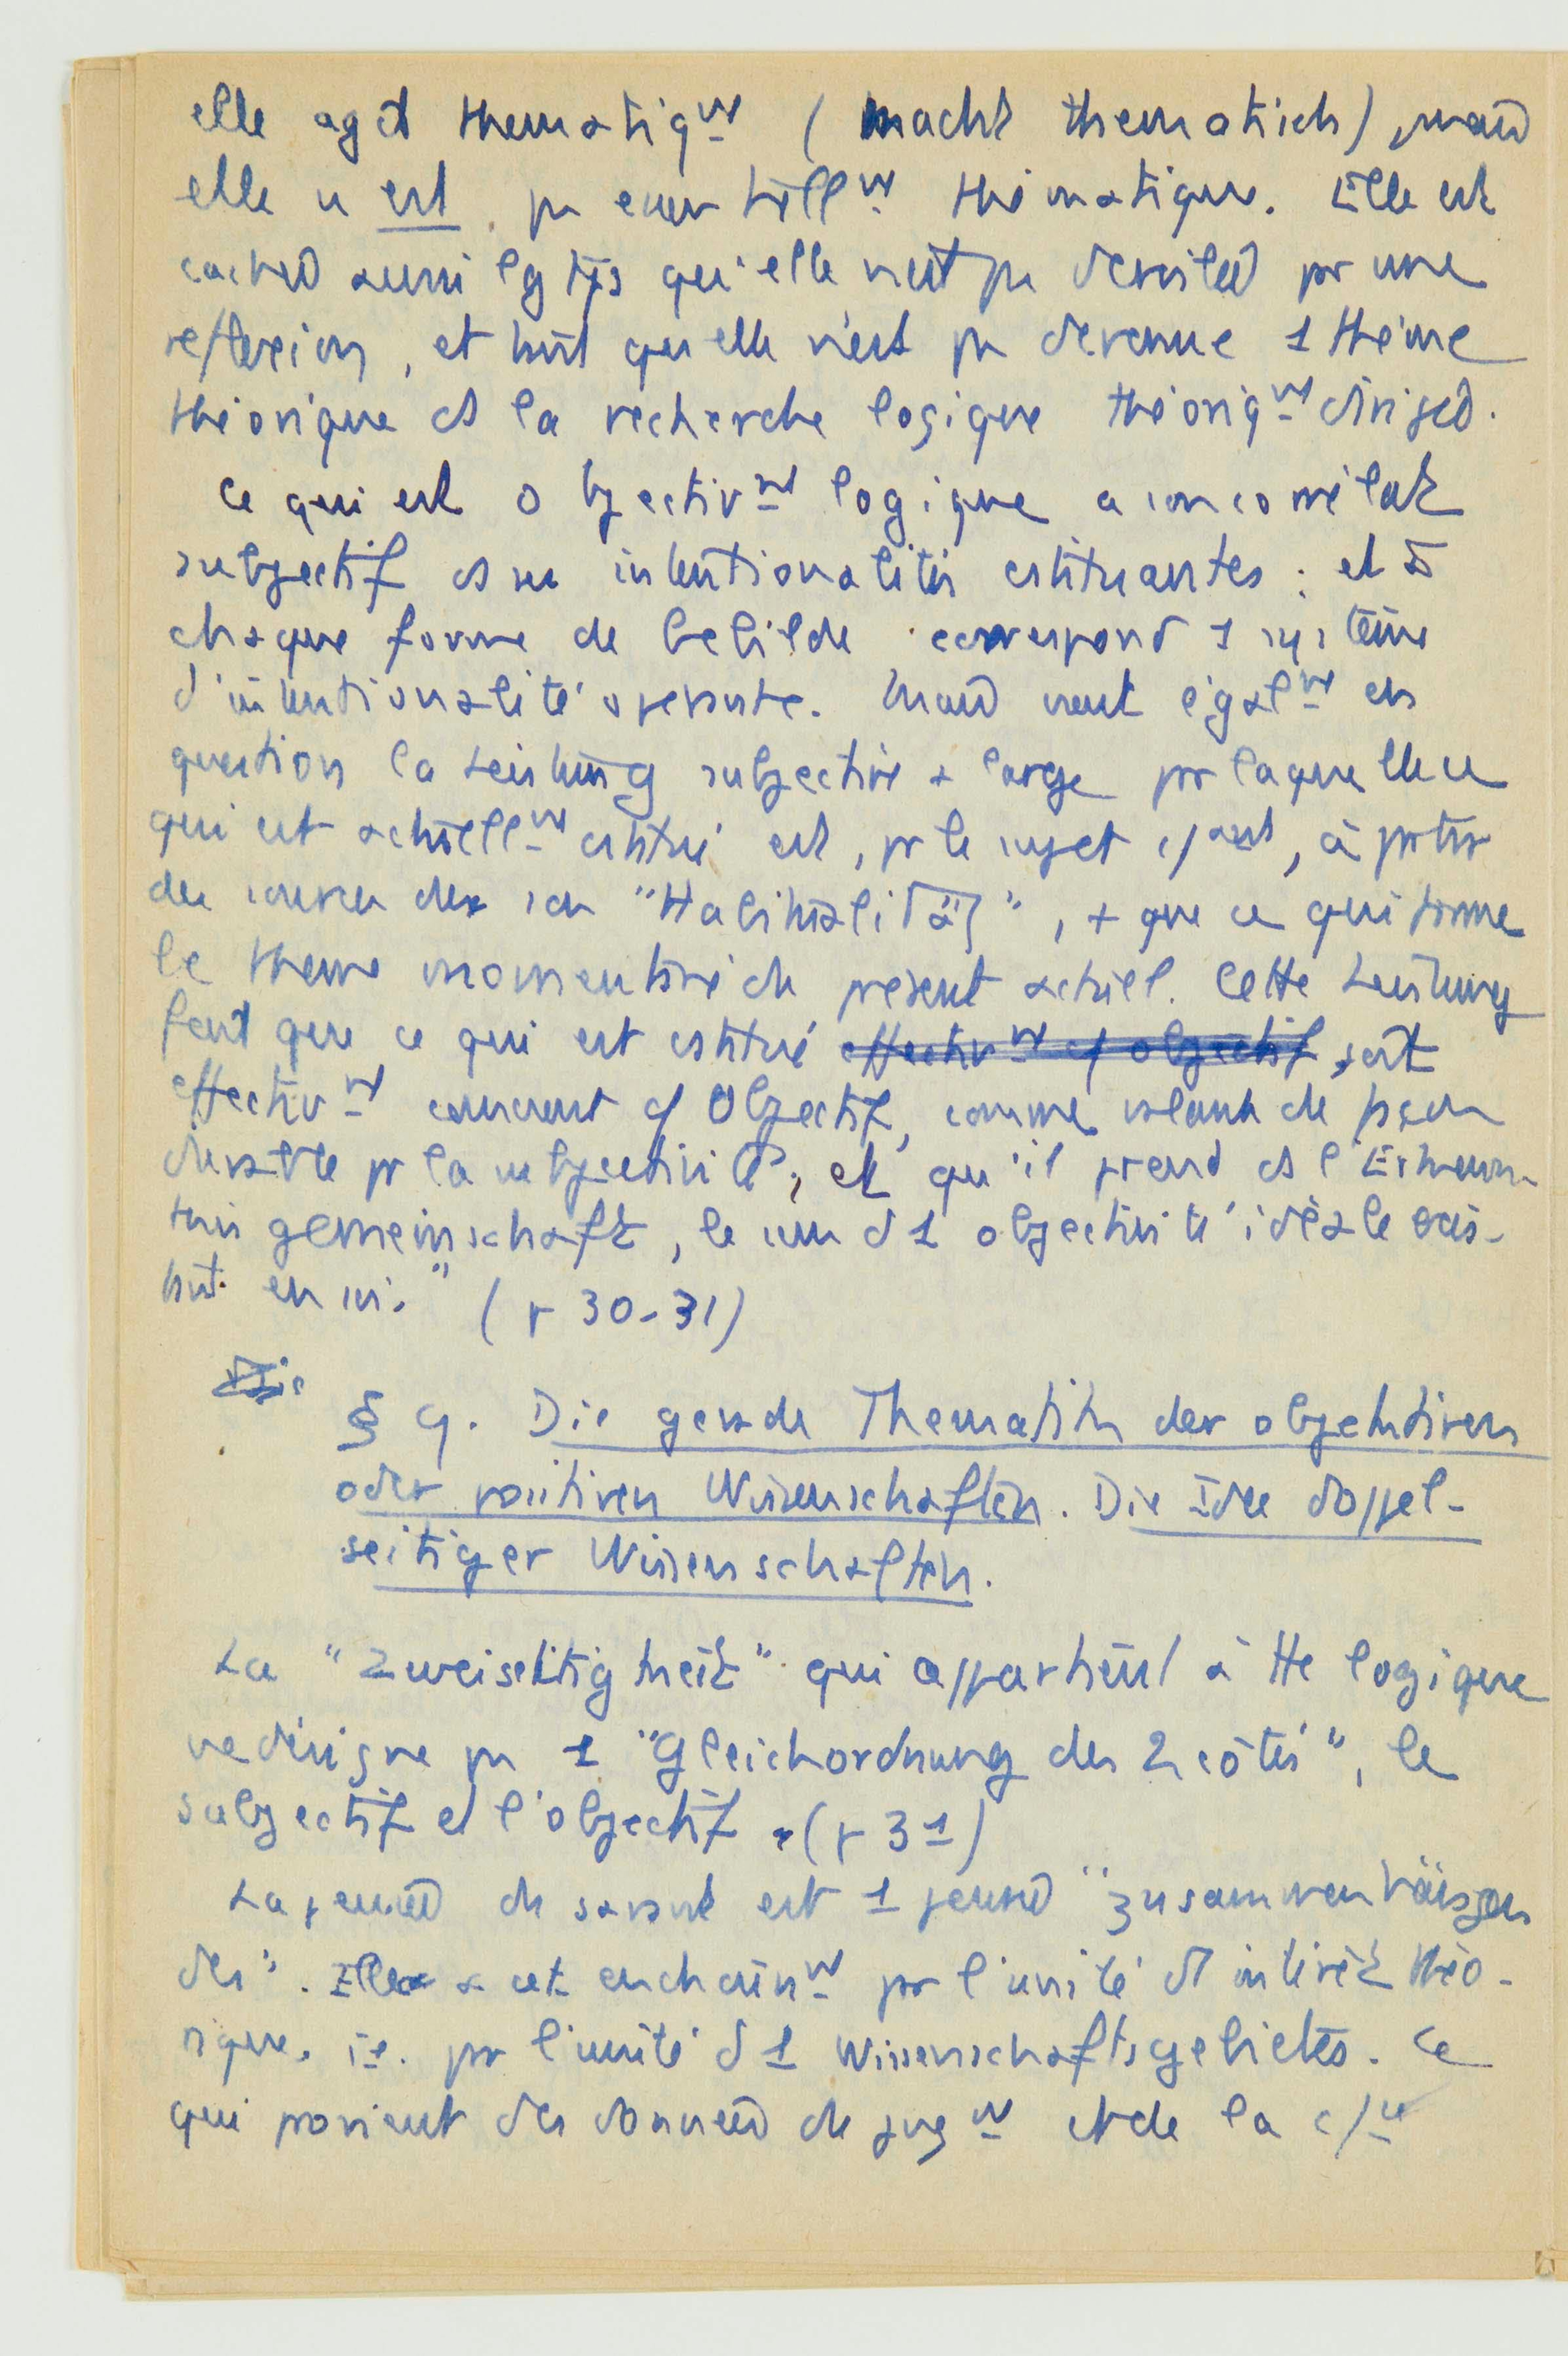 elle agit thematiqnt (macht thematisch), mais
elle n'est pas éventuellnt thématique. Elle est
cachée aussi lgtps qu'elle n'est pas dévoilée pr une
reflexion, et tant qu'elle n'est pas devenue 1 thème
théorique ds la recherche logique théoriqnt dirigée.
Ce qui est objectivnt logique a son correlat
subjectif ds ses intentionalités cstituantes ; et à
chaque forme de Gebilde correspond 1 système
d'intentionalité operante. Mais vient égalnt en
question la Leistung subjective + large pr laquelle ce
qui est actuellnt cstitué est, pr le sujet csant, à partir
des sources de son "Habitualität", + que ce qui forme
le theme momentané du présent actuel. Cette Leistung
fait que ce qui est cstitué effectivnt cf objectif, soit
effectivnt conscient cf Objectif, comme valant de façon
durable pr la subjectivité, et qu'il prend ds l'Erkennt-
nisgemeinschaft, le sens d'1 objectivité idéale exis-
tant en soi." (p 30-31)
§ 9. Die gerade Thematik der objektiven
oder positiven Wissenschaften. Die Idee doppel-
seitiger Wissenschaften.
La "Zweiseitigkeit" qui appartient à tte logique
ne désigne pas 1 "Gleichordnung des 2 côtés", le
subjectif et l'objectif. (p 31)
La pensée du savant est 1 pensée "zusammenhängen
des". Elle a cet enchaînnt pr l'unité d'intérêt théo-
rique, i.e. pr l'unité d'1 Wissenschaftsgebietes. Ce
qui provient des données du jugnt et de la cce